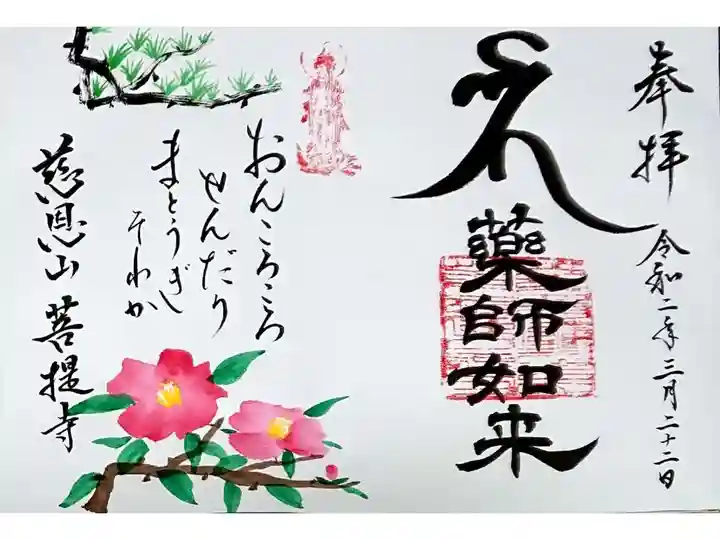 奉拝
令和二年三月二十二日
薬師如来
おんころころ
せんだり
まとうぎ
そわか
慈恩山 菩提寺